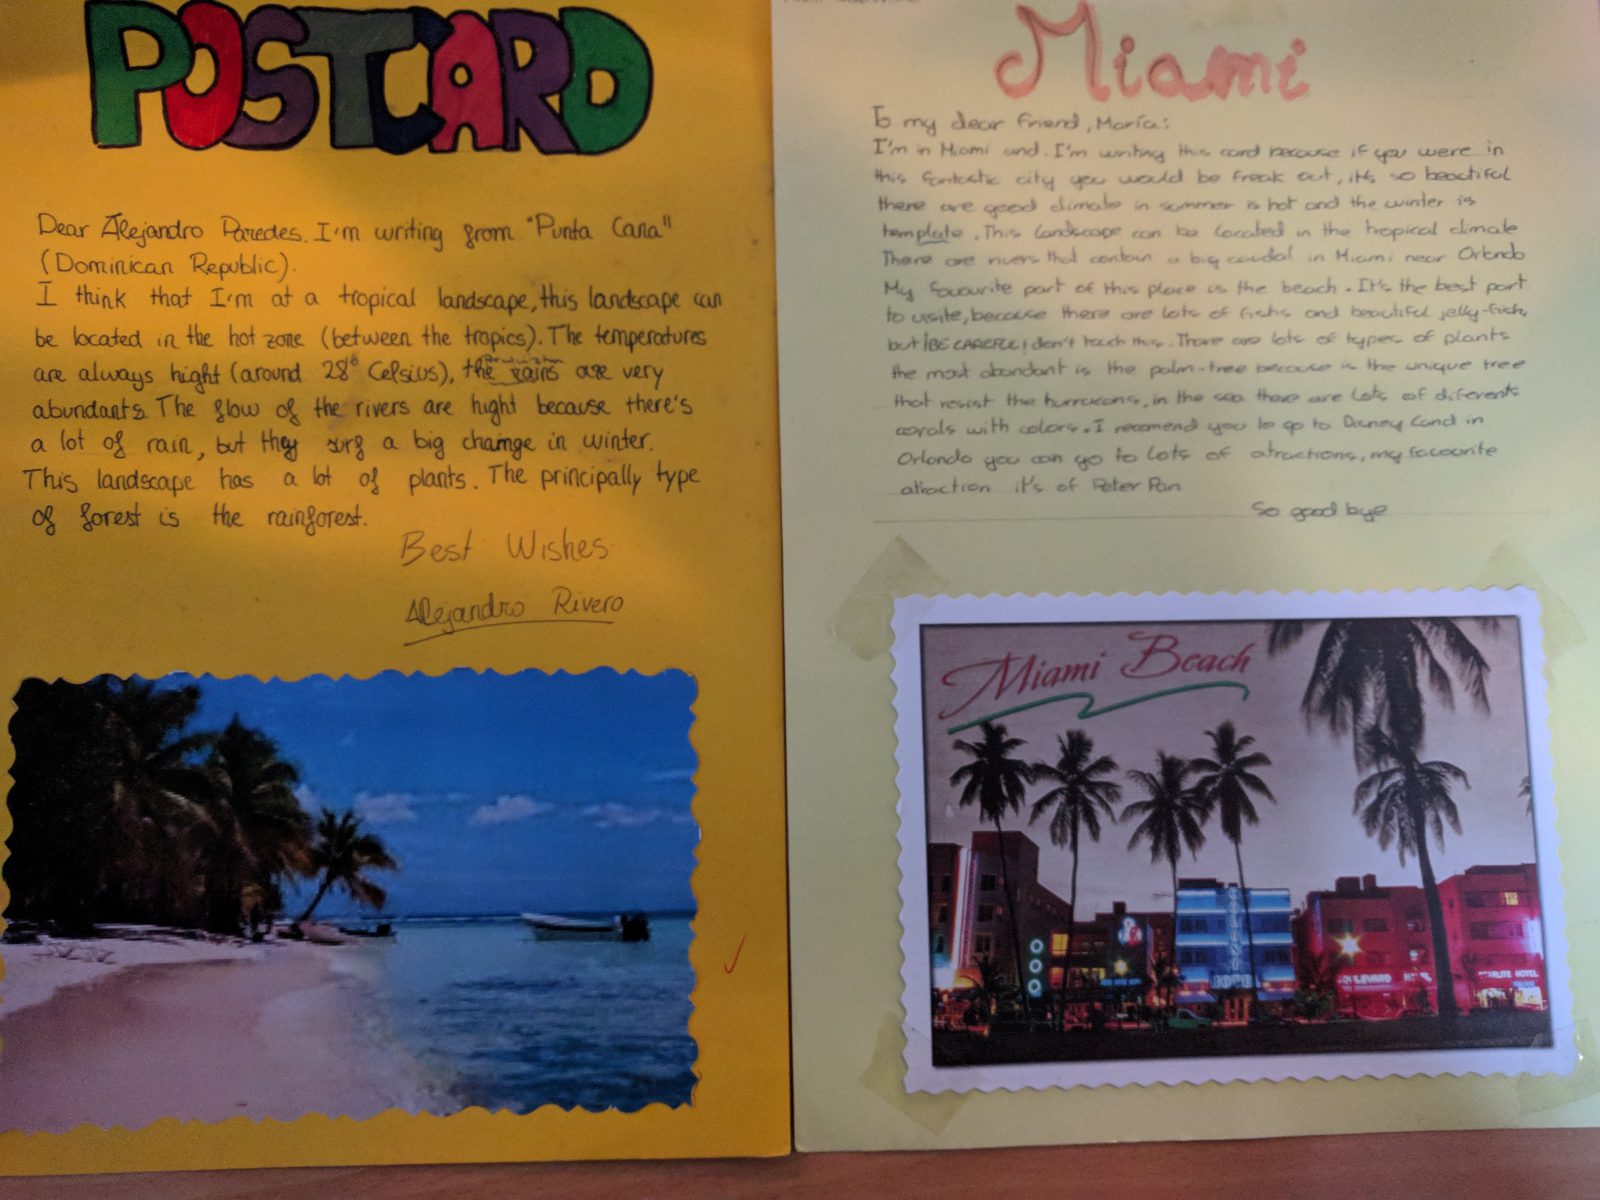 POSTCARD
Dear Alejandro Paredes. I'm writing from "Punta Cana"
(Dominican Republic).
I think that I'm at a tropical landscape, this landscape can
be located in the hot zone (between the tropics). The temperatures
are always hight (around 28° Celsius), the rains are very
abundants. The flow of the rivers are hight because there's
a lot of rain, but they surf a big chainge in winter.
This landscape has a lot of plants. The principally type
of forest is the rainforest.
Best Wishes
Alejandro Rivero
Miami
To my dear friend, María:
I'm in Miami and. I'm writing this card because if you were in
this fantastic city you would be freak out, it's so beautiful
there are good climate in summer is hot and the winter is
template. This landscape can be located in the tropical climate
There are rivers that contain a big caudal in Miami near Orlando
My favourite part of this place is the beach. It's the best part
to visite, because there are lots of fishs and beautiful jelly-fish,
but ¡BE CAREFUL! don't teach this. There are lots of types of plants
the most abundant is the palm-tree because is the unique tree
that resist the hurracans, in the sea there are lots of diferents
corals with colors. I recomend you to go to Disney Land in
Orlando you can go to lots of atractions, my favourite
atraction it's of Peter Pan
So good bye
Miami Beach
COLONY
HOTEL
BOULEVARD HOTEL
STARLITE HOTEL